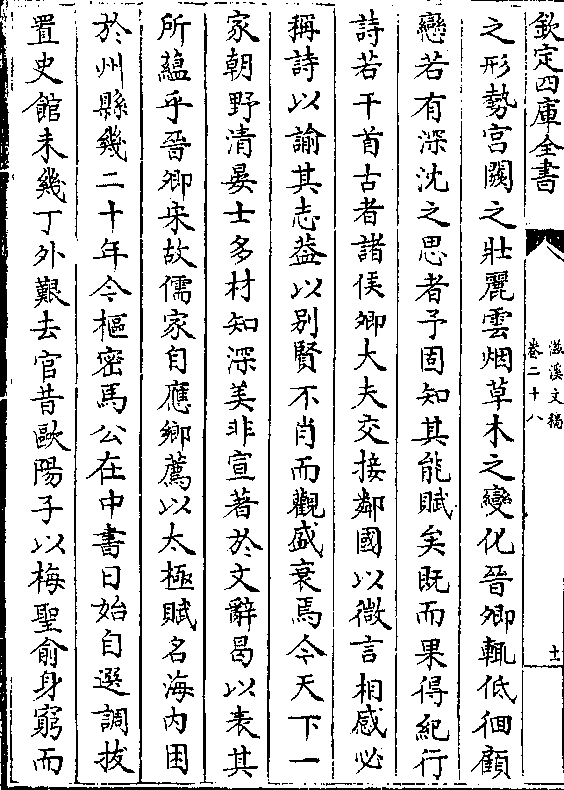 欽定四庫全書
滋溪文稿
卷二十八
十一
之形勢宫闕之壯麗雲烟草木之變化晉卿輒低徊顧
戀若有深沈之思者予固知其能賦矣既而果得紀行
詩若干首古者諸侯卿大夫交接鄰國以微言相感必
稱詩以諭其志葢以别賢不肖而觀盛衰焉今天下一
家朝野清晏士多材知深美非宣著於文辭曷以表其
所藴乎晉卿宋故儒家自應鄉薦以太極賦名海内困
於州縣幾二十年今樞密馬公在中書日始自選調拔
置史館未幾丁外艱去官昔歐陽子以梅聖俞身窮而